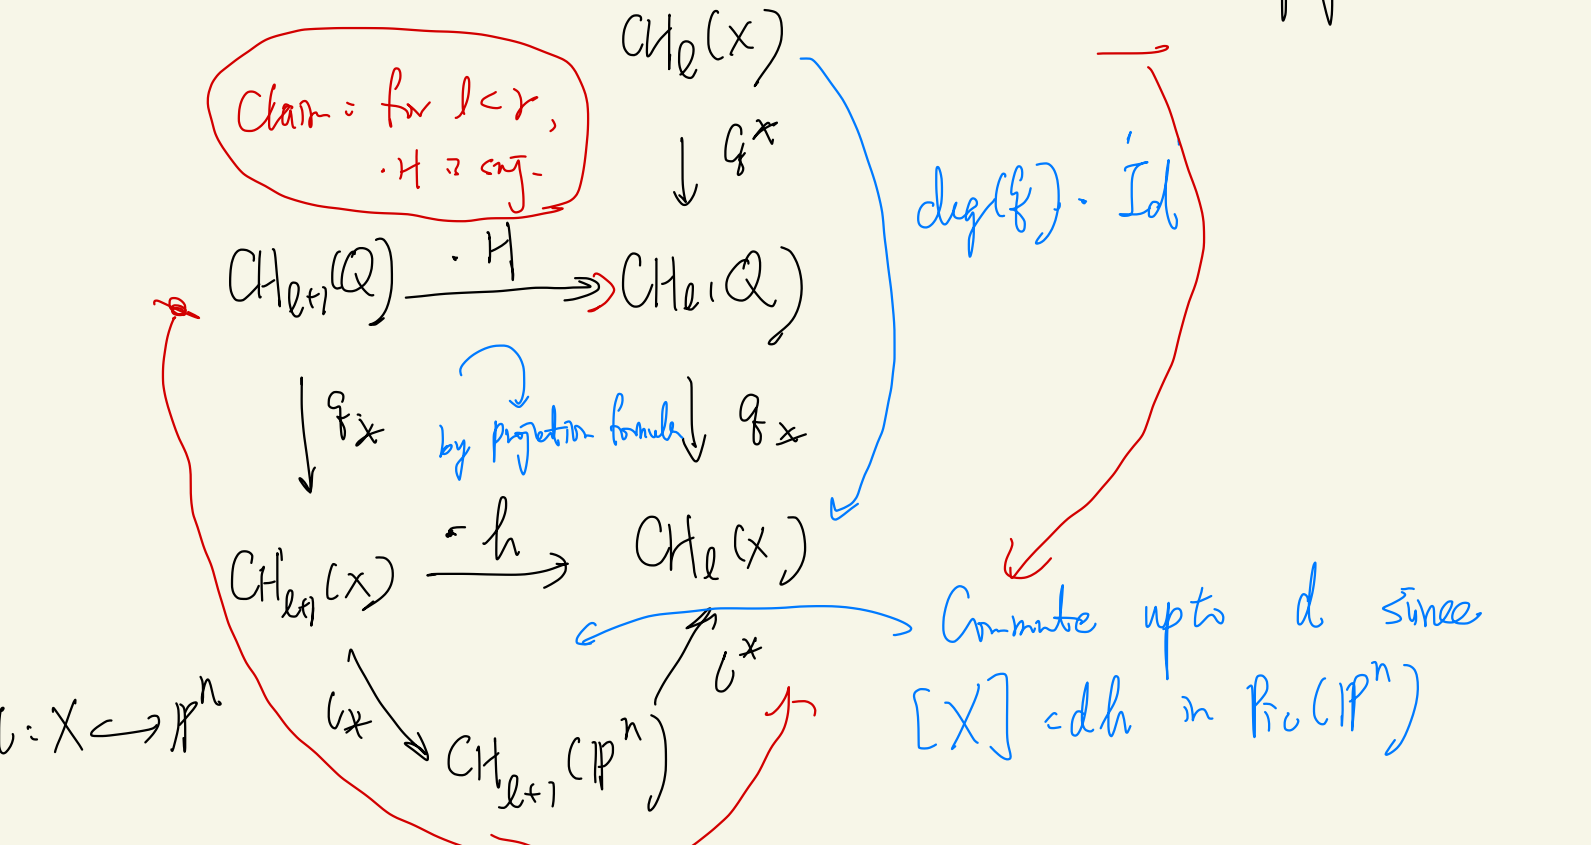 CH_l(X)
Claim: for l < r,
·H is surj.
q^*
deg(q) · Id
CH_{l+1}(Q)
·H
CH_l(Q)
q_*
by projection formula
q_*
·h
CH_{l+1}(X)
CH_l(X)
Commute upto d since
[X] = dh in Pic(ℙ^n)
ι: X ↪ ℙ^n
ι_*
ι^*
CH_{l+1}(ℙ^n)